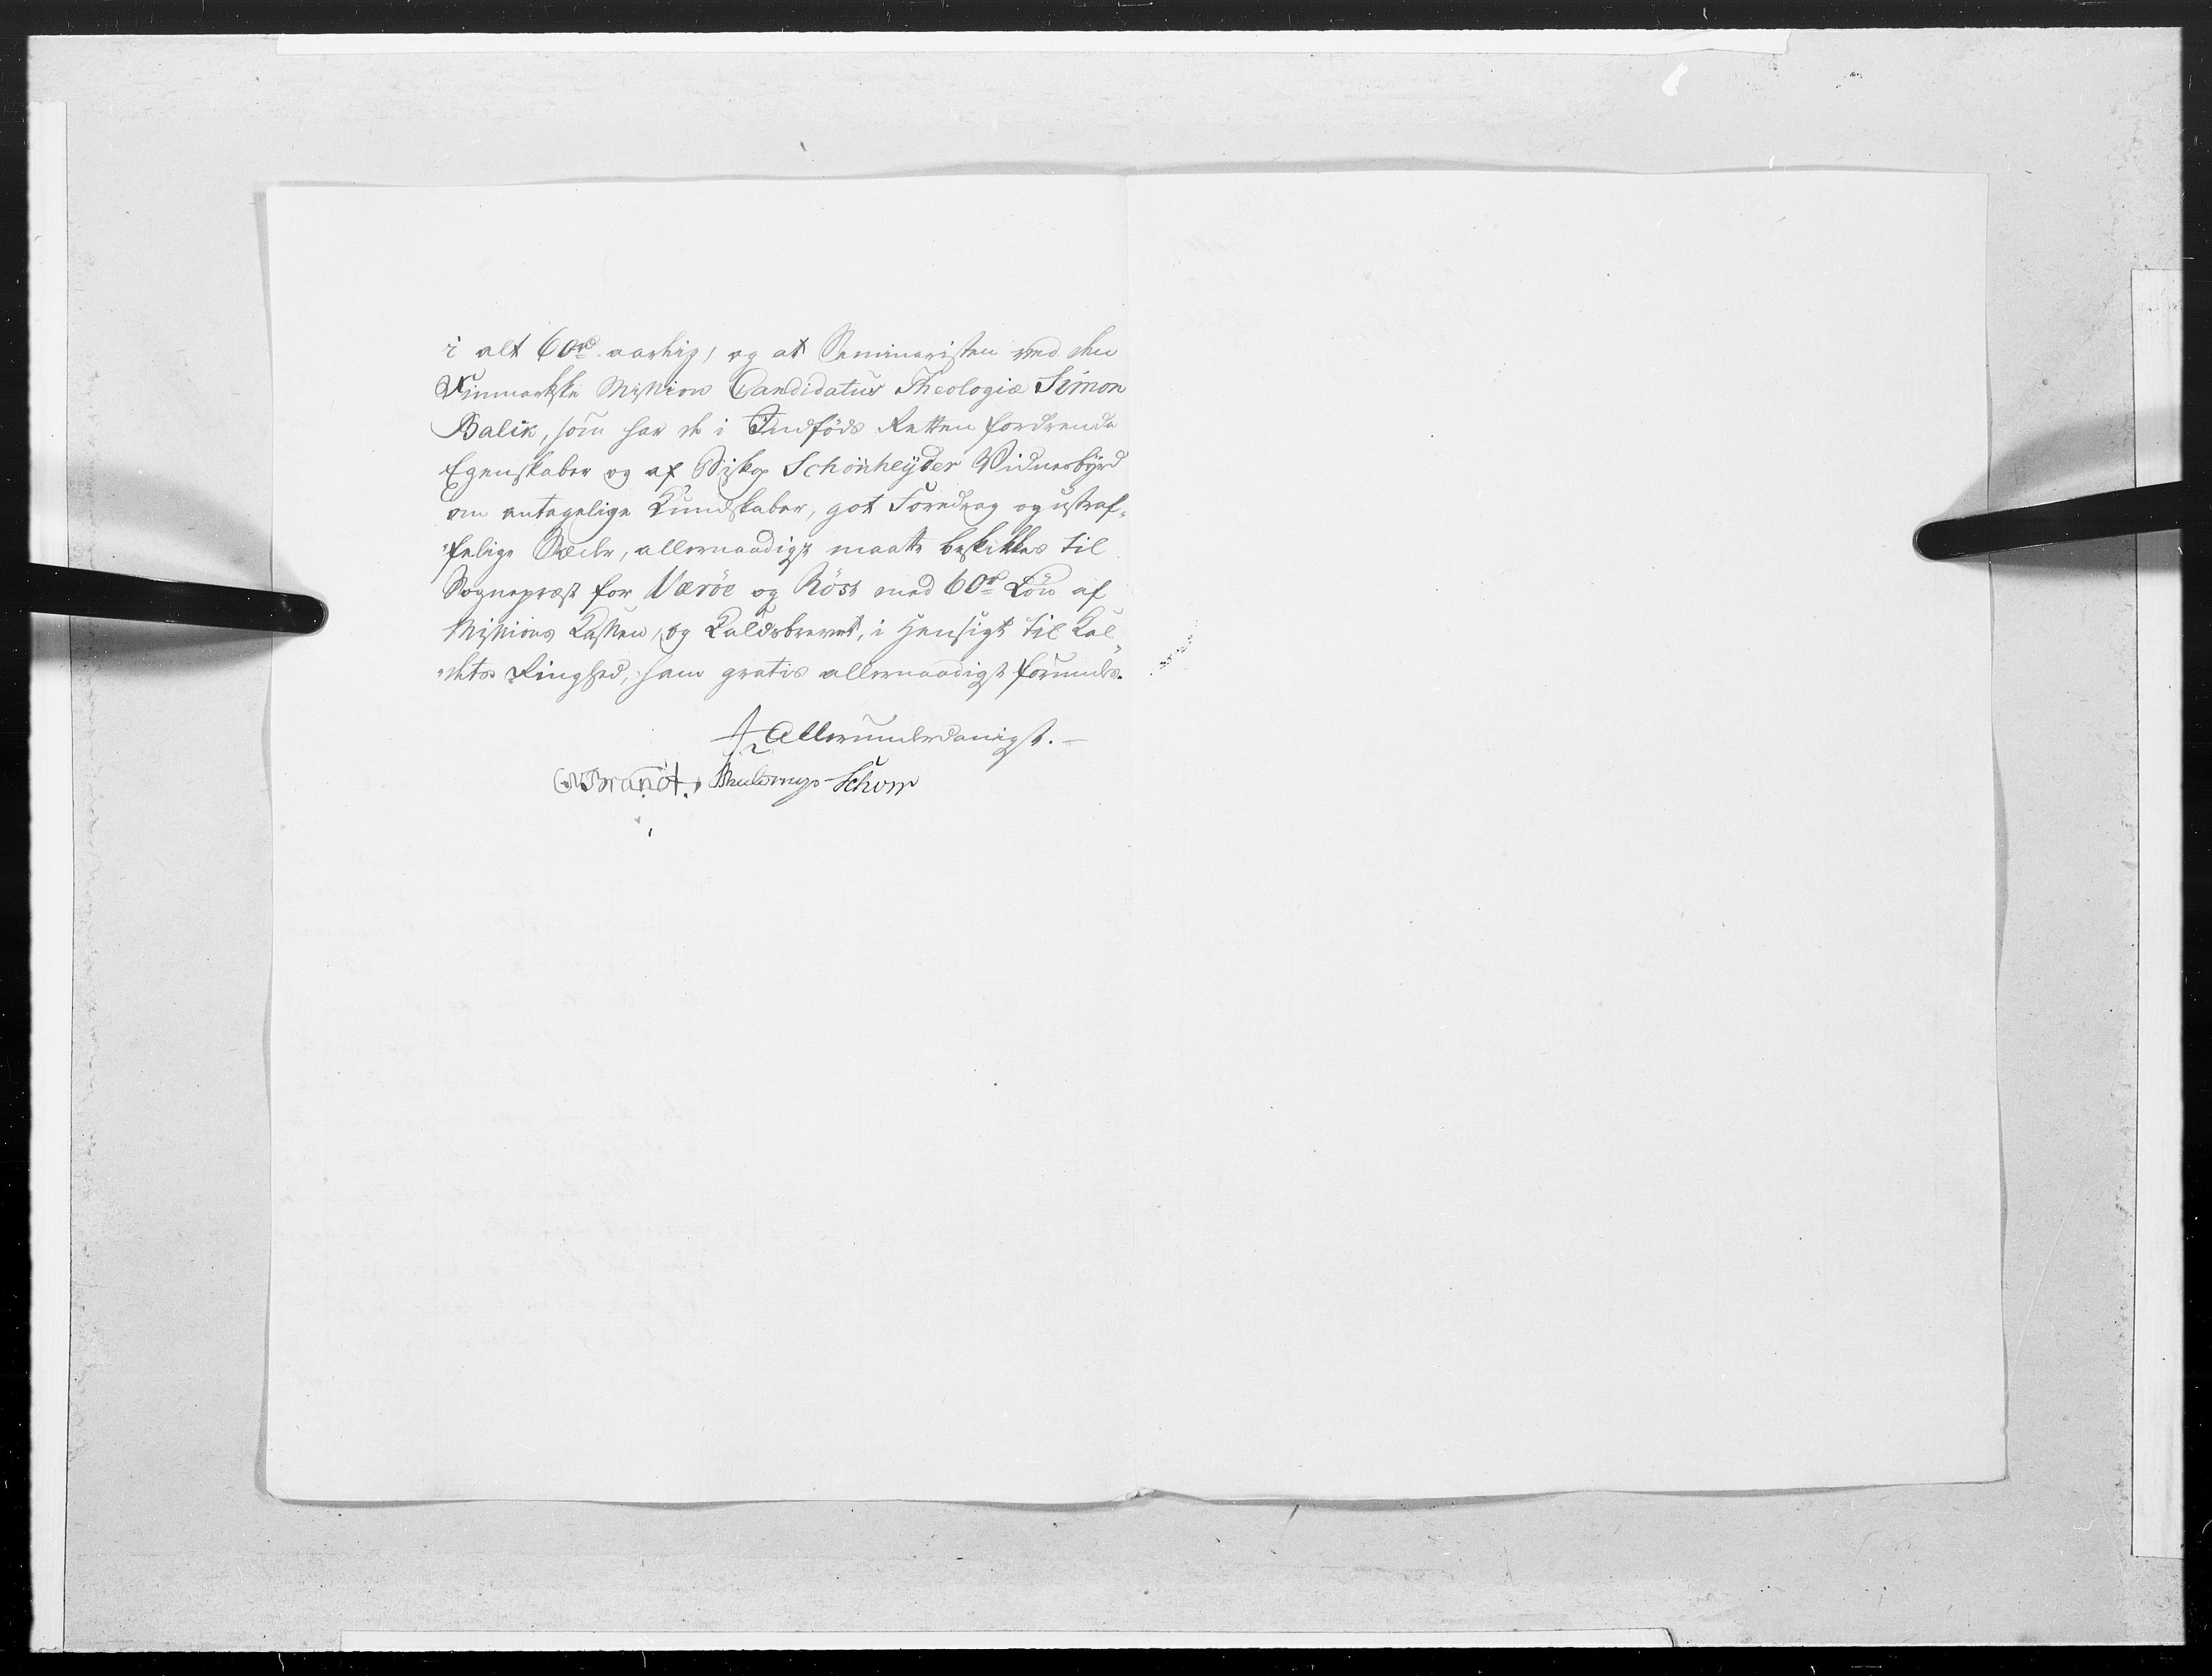 i alt 60rd. aarlig, og at Seminaristen ved den
Finmarkske Mission Candidatus Theologiæ Simon
Balik, som har de i Indföds Retten fordrende
Egenskaber og af Biskop Schönheyder Vidnesbyrd
om antagelige Kundskaber, got Foredrag og ustraf-
felige Sæder, allernaadigst maatte beskikkes til
Sognepræst for Væröe og Röst med 60rd Lön af
Missions Kassen, og Kaldsbrevet, i Hensigt til Kal-
dets Ringhed, ham gratis allernaadigst forundes.
Allerunderdanigst.
Brandt. Schow